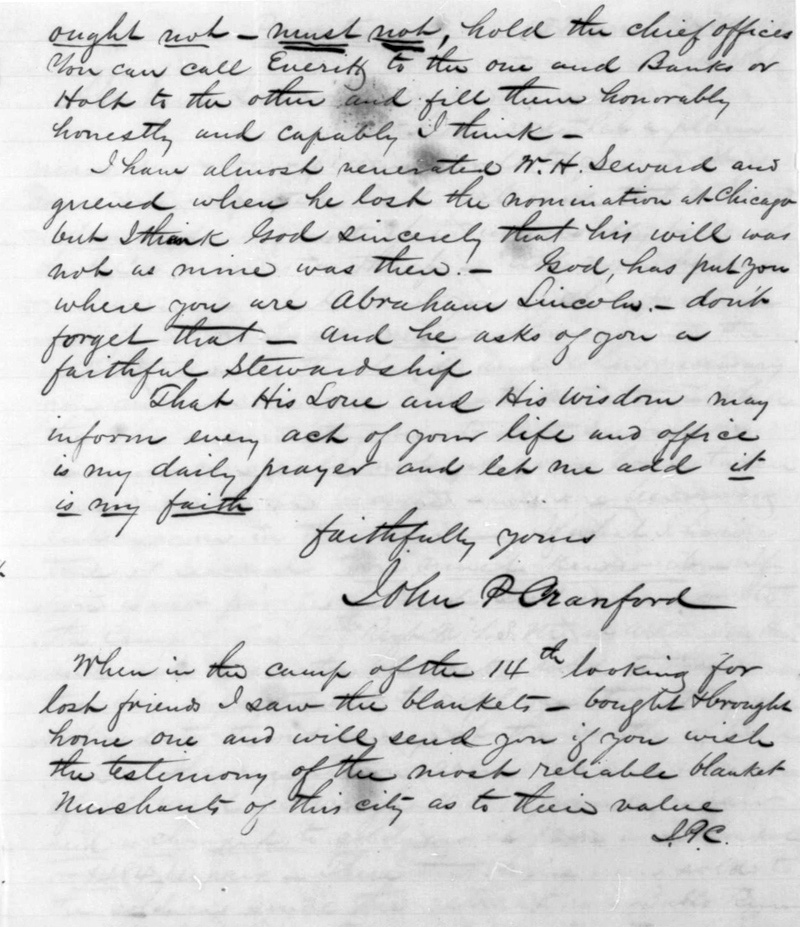 ought not – must not, hold the chief offices
You can call Everitt to the one and Banks or
Holt to the other and fill them honorably
honestly and capably I think –
I have almost venerated W. H. Seward and
grieved when he lost the nomination at Chicago
but I thank God sincerely that his will was
not as mine was then. – God, has put you
where you are Abraham Lincoln. – don't
forget that – and he asks of you a
faithful Stewardship
That His Love and His Wisdom may
inform every act of your life and office
is my daily prayer and let me add it
is my faith
faithfully yours
John P Cranford
When in the camp of the 14th looking for
lost friends I saw the blankets – bought & brought
home one and will send you if you wish
the testimony of the most reliable blanket
Merchants of this city as to their value
J.P.C.